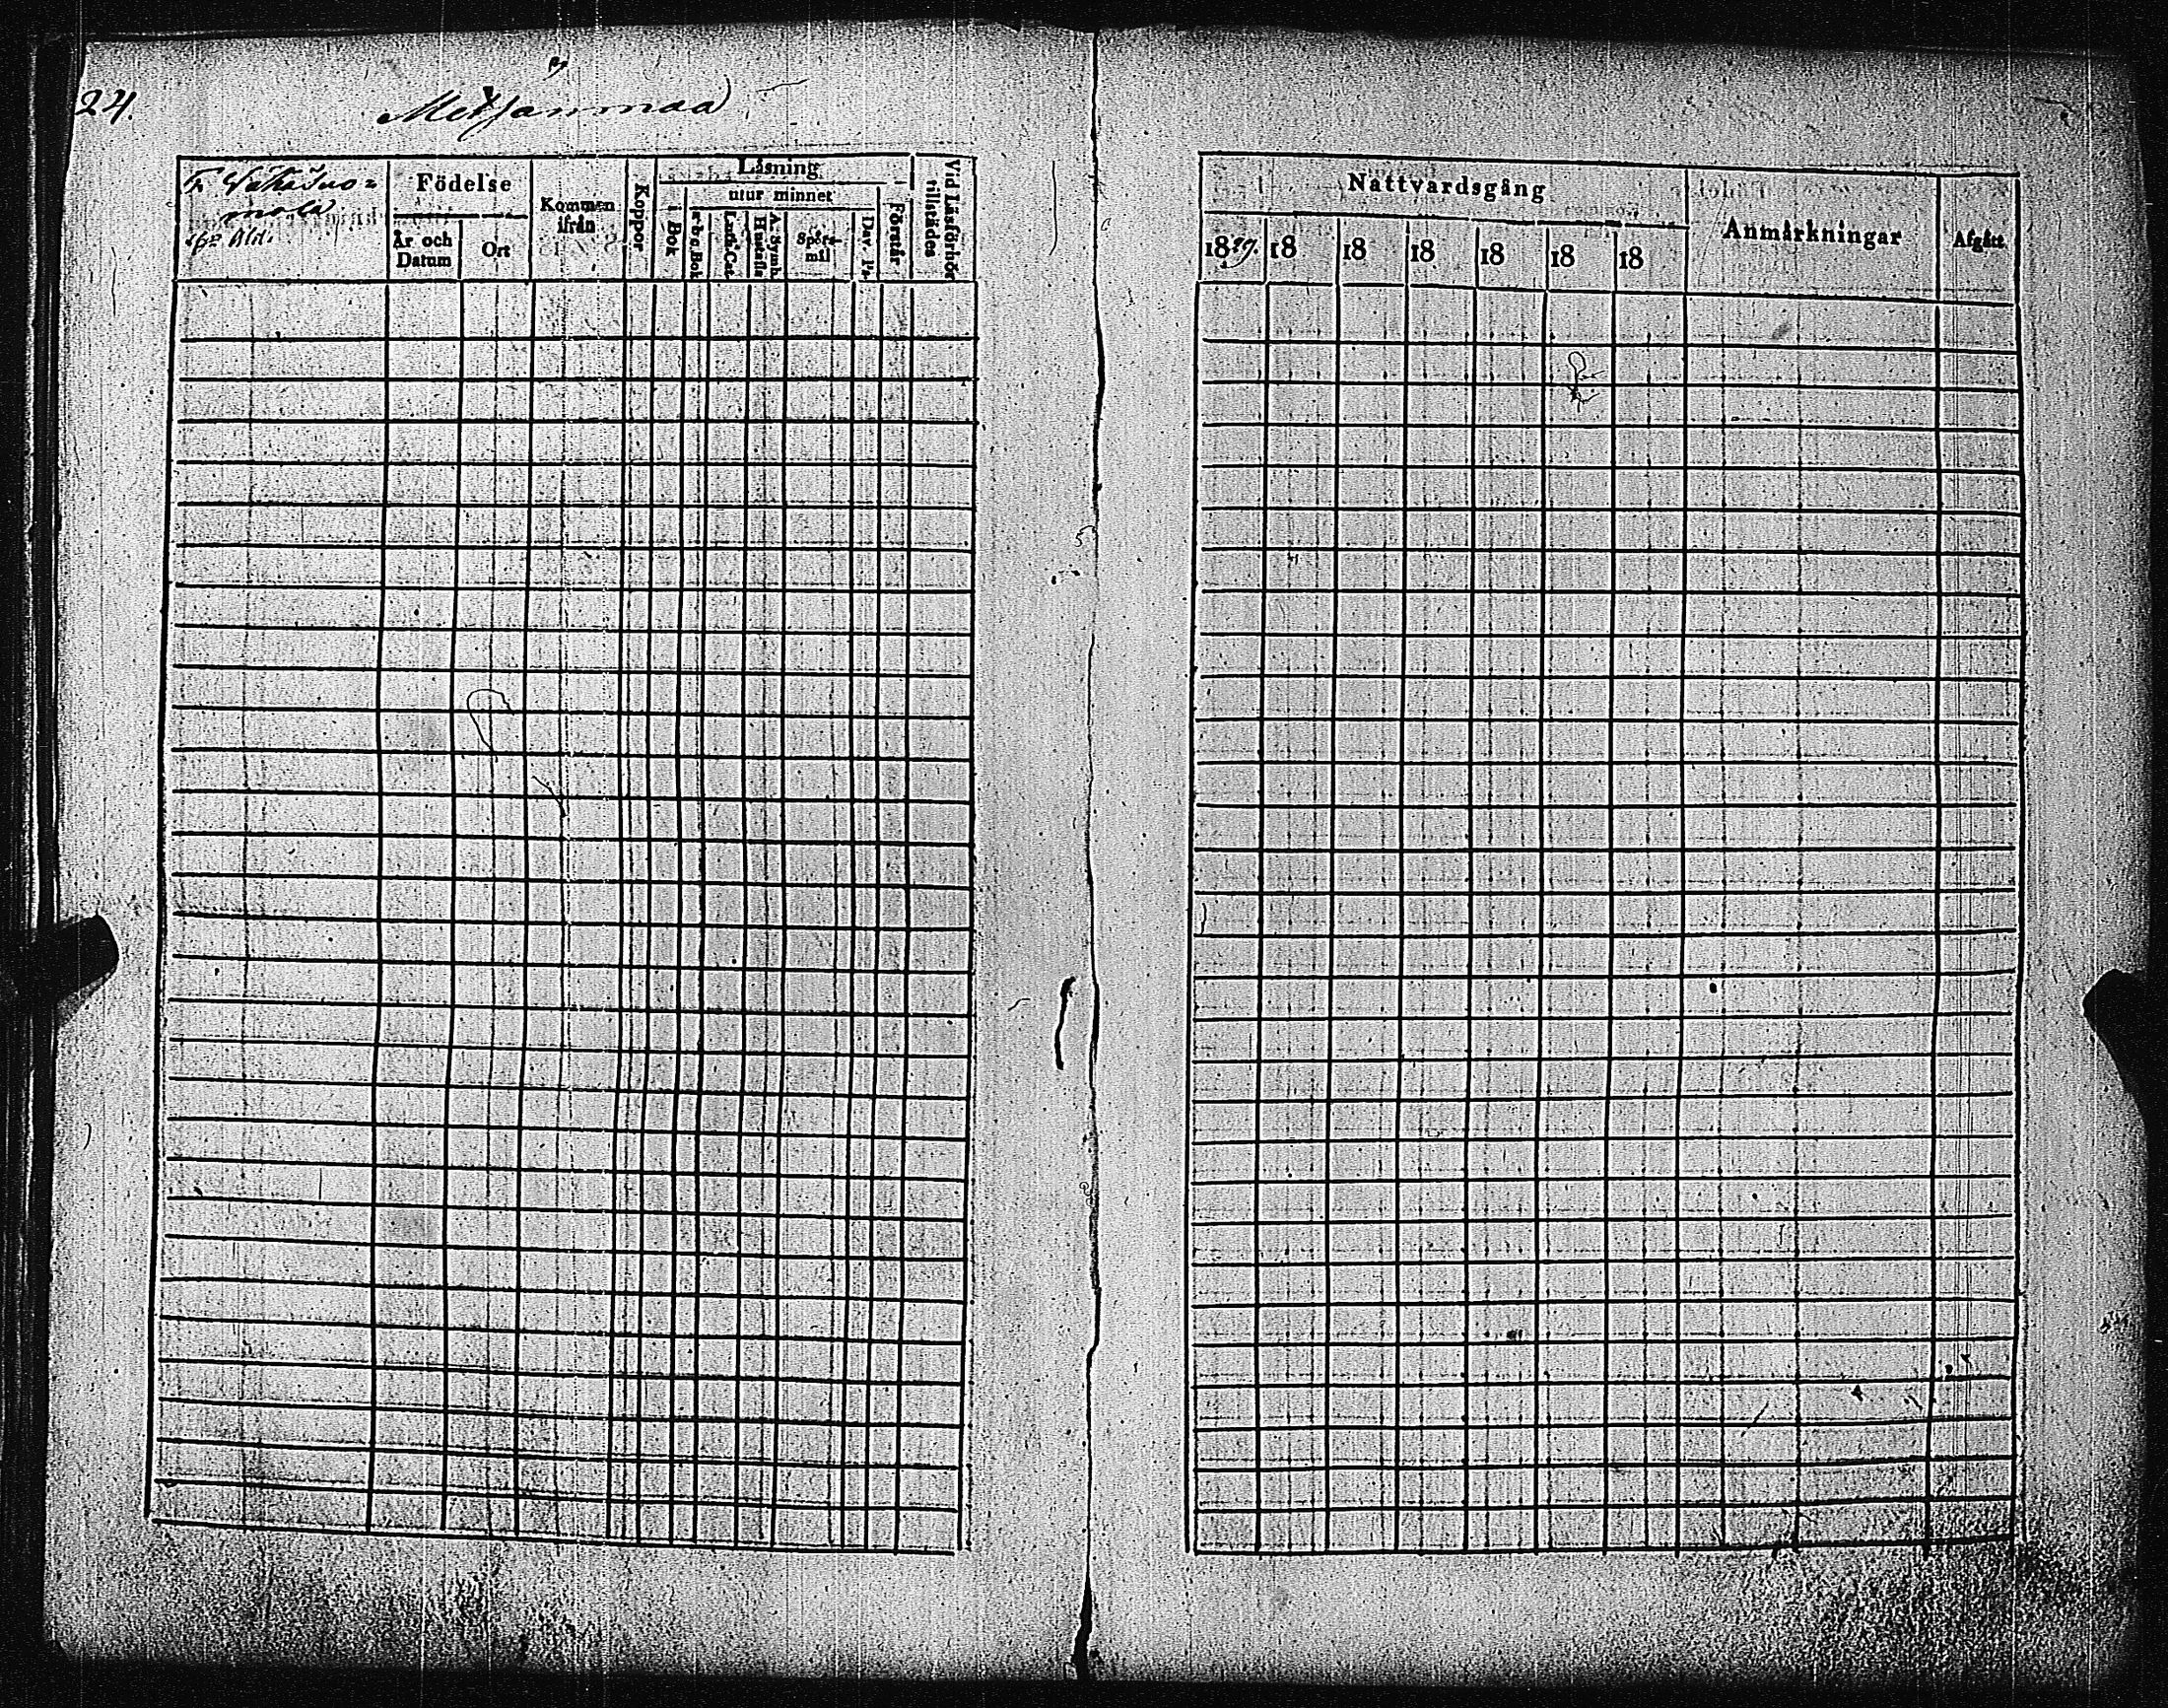 24.
by
Metsänmaa
Födelse
År och Datum
Ort
Kommen ifrån
Koppor
Läsning
i Bok
utur minnet
a-b-c-Bok
Luth. Cat.
A. Symb. Hustafla
Spörsmål
Dav. Ps.
Förstår
Vid Läsförhör tillstädes
Nattvardsgång
1829.
18
18
18
18
18
18
Anmärkningar
Afgått.